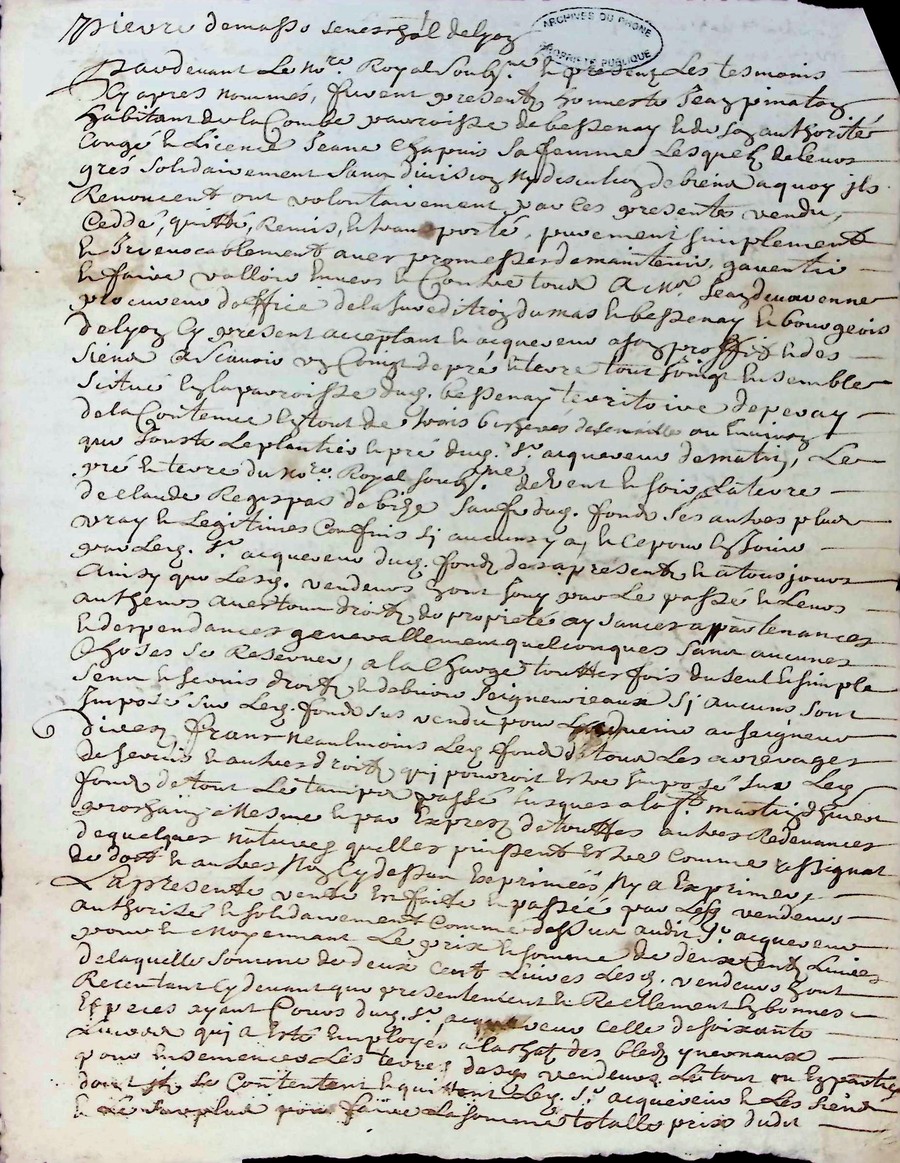 Pierre demasso seneschal delyon
ARCHIVES DU RHONE
PROPRIETE PUBLIQUE
Pardevant Le no.re Royal Soub.ne & present Les tesmoins
Cy apres nommés, furent presents honneste Jean pinaton
habitant de la Combe parroisse de bessenay & de son authorité
Congé & Licence Jeane Chapuis sa femme Lesquelz de leurs
grés solidairement sans division ny discution de biens a quoy ils
Renoncent ont volontairement par ces presentes vendu,
Ceddé, quitté, Remis, & transporté, purement simplement
& Irrevocablement avec promesses de maintenir, garentir
& faire valloir envers & Contre tous A M.re Jean duvarenne
procureur doffice de la jurediction du mas & bessenay & bourgeois
delyon Cy present acceptant & acquereur a son proffit & des
siens a Scavoir un Coing de pré & terre tout joinct Ensemble
scitué en la parroisse dud. bessenay territoire de peray
de la Contenue en tout de trois bicherées de semaille ou Environ
qui jouste Le plantier & pré dud. Sr. acquereur de matin, Le
pré & terre du no.re Royal soub.né de vent & soir La terre
de claude Regis pas de bize Sauf dud. fondz ses autres plus
vray & Legitimes Confins si aucuns y a, & ce pour En jouir
par Led. Sr. acquereur dud. fondz des a present & a tousjours
Ainsy que Lesd. vendeurs Lont jouy par Le passé & Leurs
autheurs avec tous droitz de proprieté aysances appartenances
& despendances generallement quelconques sans aucunes
Choses se Reserver, a la Charge touttes fois du seul & simple
Cens & servis droitz & debvoirs seigneuriaux si aucuns sont
Imposé sur Led. fondz sus vendu pour au seigneur
direct, franc neaulmoins Led. fondz de tous Les arrerages
de servis & autres droitz qui pouroit Estre Imposé sur Led.
fondz de tout Le tamps passé jusques a la St. martin dhiver
prochain Mesme & par Exprez de touttes autres Redevances
de quelques natures quelles puissent Estre Comme assignat
de dott & autres Non Cy dessus Exprimées, Ny a Exprimer,
La presente vente Est faite & passée par Lesd. vendeurs
authorisé & solidairement Comme dessus audit Sr. acquereur
pour & Moyennant Le prix & somme de deux Centz Livres
de laquelle somme de deux Cent Livres Lesd. vendeurs Lont
Receu tant Cy devant que presentement & Reellement En bonnes
Especes ayant Cours dud. Sr. acquereur celle de soixante
Livres qui a Esté Employé a lachat des bledz yvernaux
pour Ensemencer Les terres desd. vendeurs Le tout ou En partie
dont ilz se Contentent & quittent Led. Sr. acquereur & Les siens
& Le surplus pour faire La somme totalle prix dudit